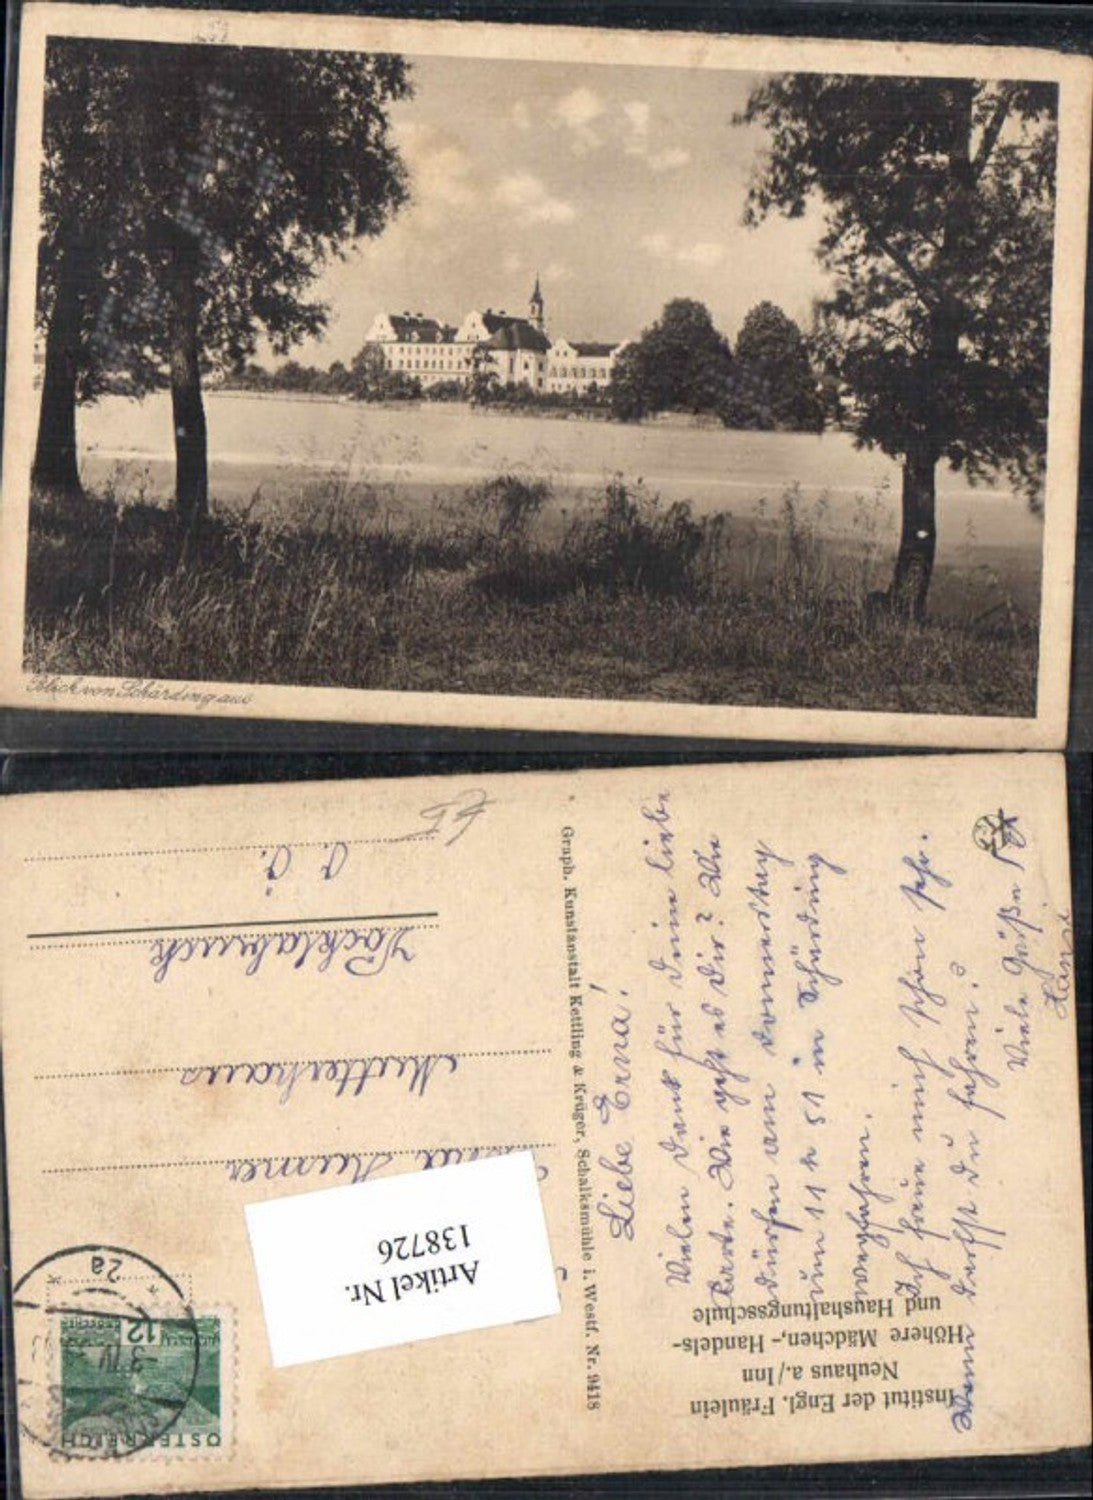 Blick von Schärding aus
Institut der Engl. Fräulein
Neuhaus a./Inn
Höhere Mädchen-, Handels-
und Haushaltungsschule
Liebe Erna!
Vielen Dank für Deine liebe
Karte. Wie geht es Dir? Wir
dürfen am Donnerstag
um 11 h 51 in Schärding
wegfahren.
Ich freue mich schon sehr.
Wann darfst Du fahren?
Viele Grüße
Hansi
Graph. Kunstanstalt Kettling & Krüger, Schalksmühle i. Westf. Nr. 9418
ÖSTERREICH
12
GROSCHEN
-3. IV
2a
Artikel Nr.
138726
Mutterhaus
Vöcklabruck
O. Ö.